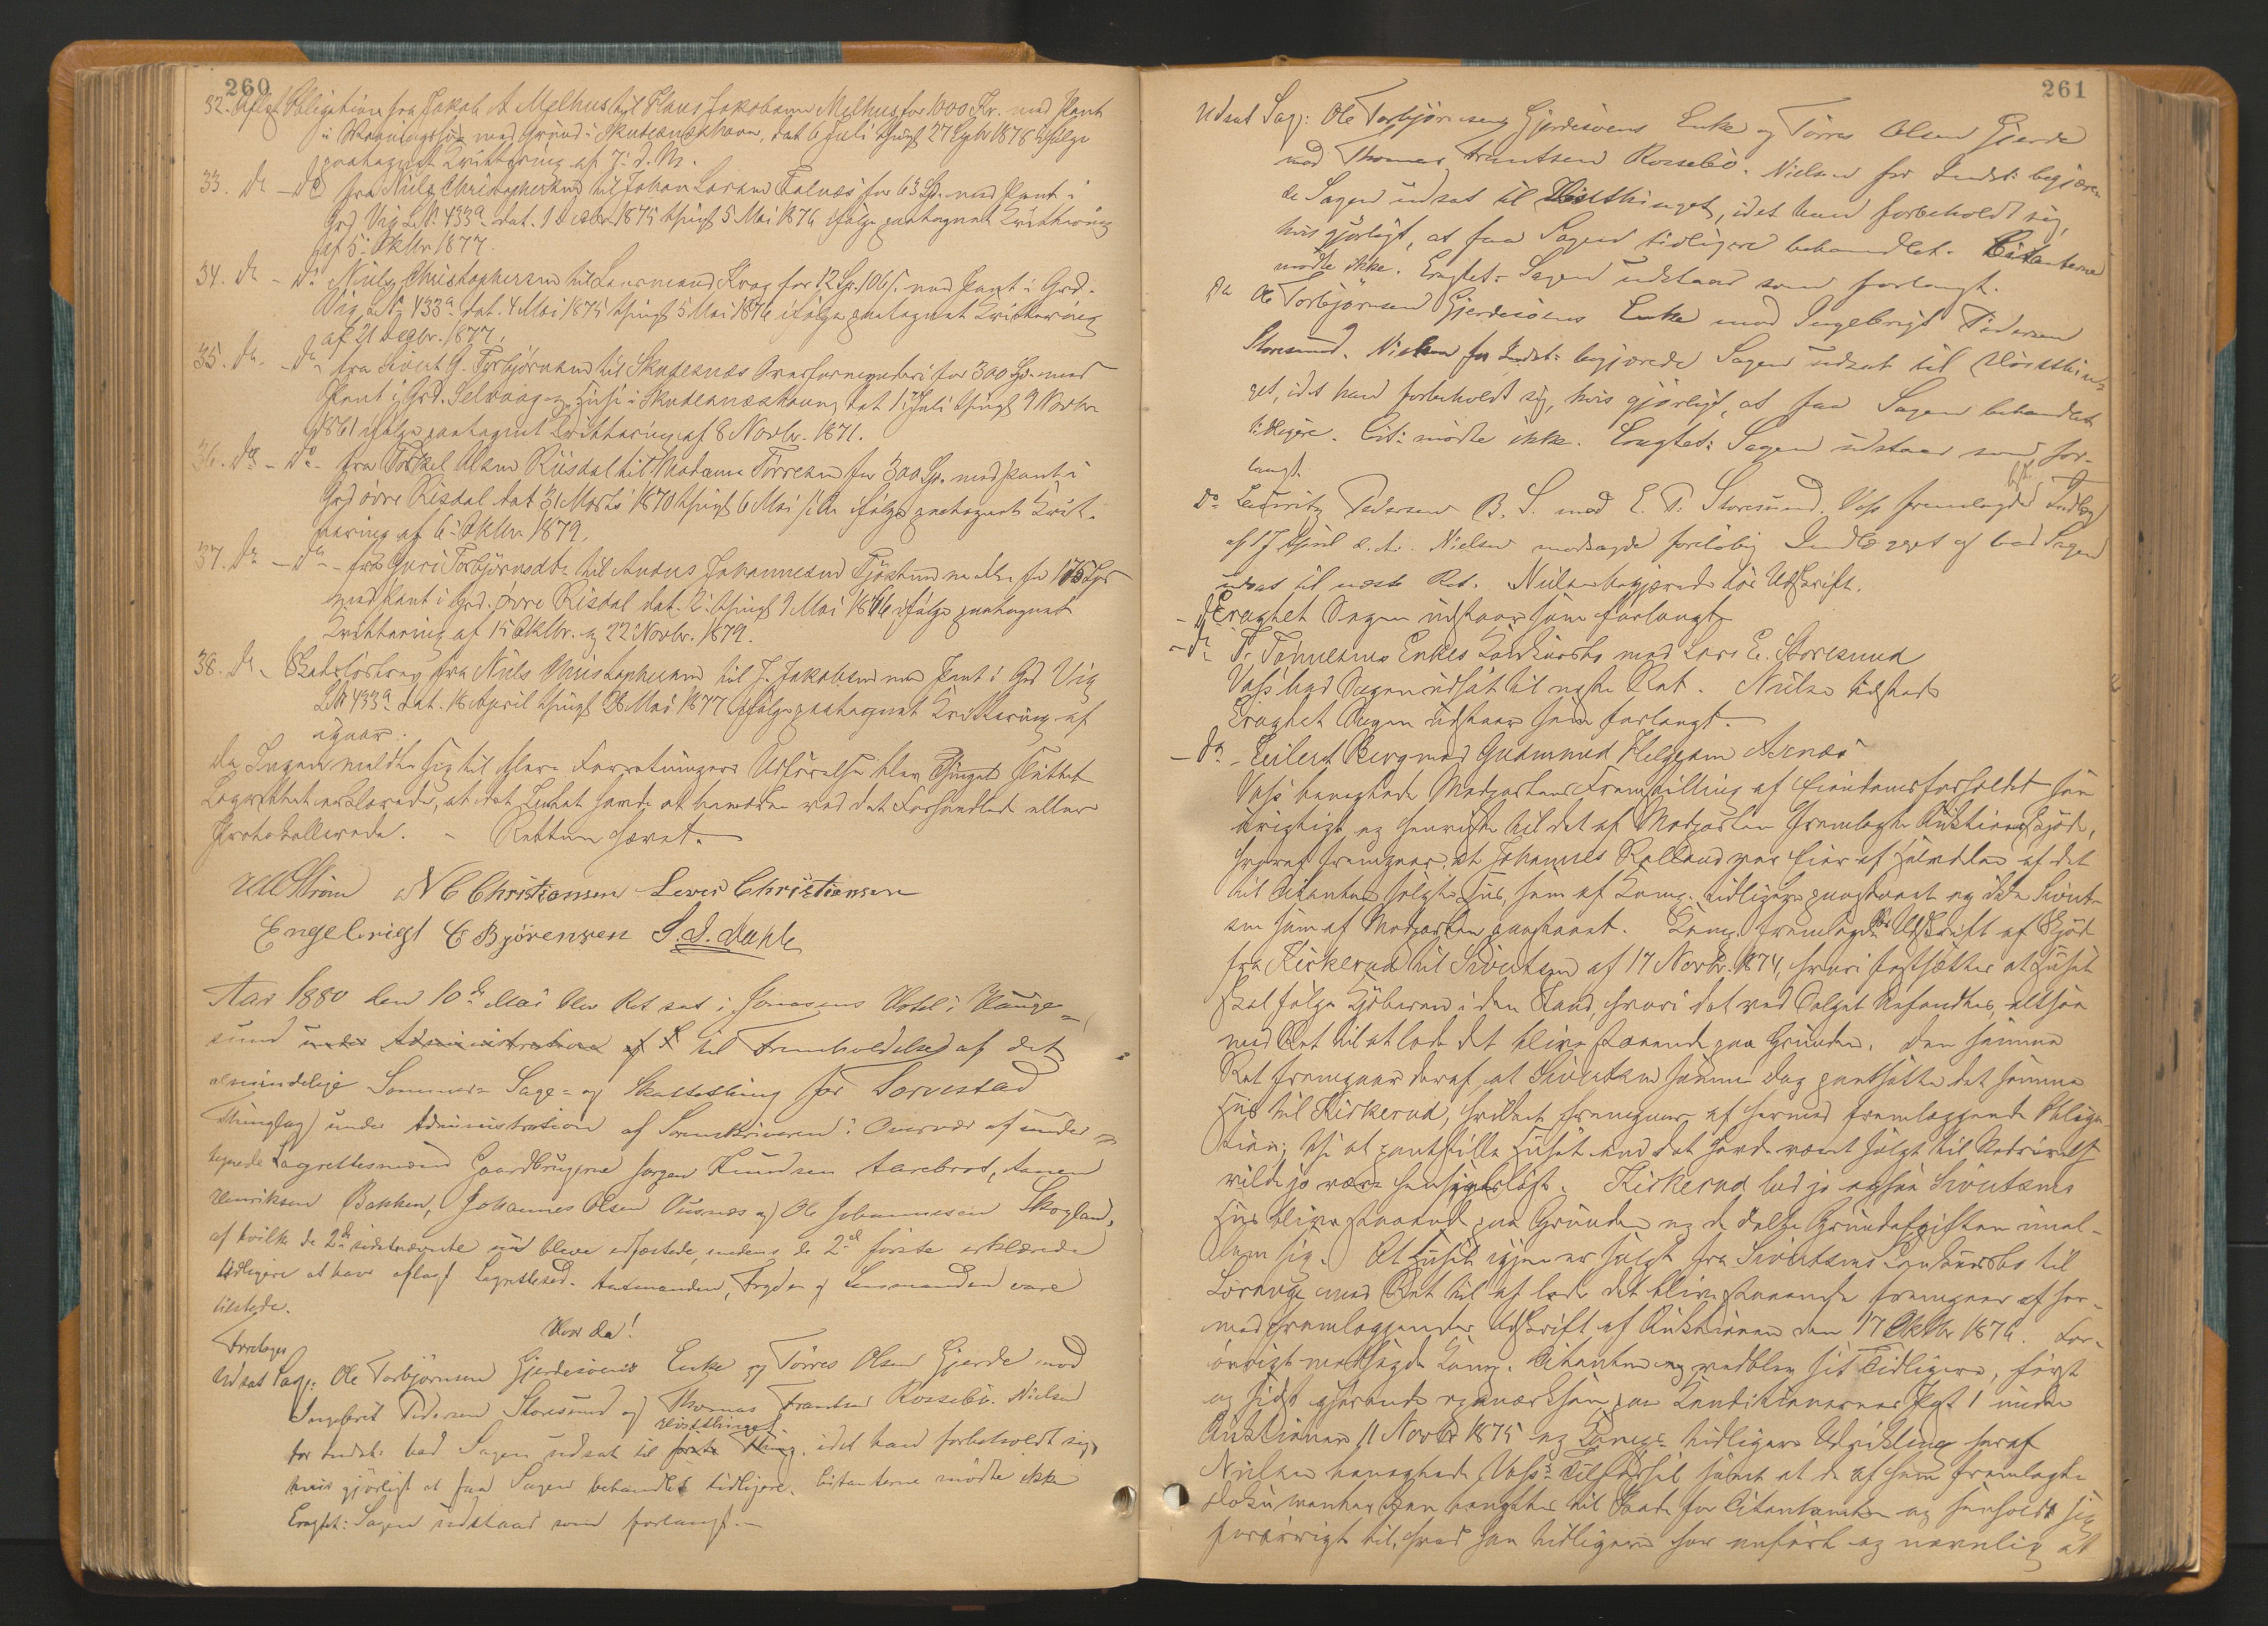 260
32. Aflæst Obligation fra Jakob A Mælhus til Claus Jakobsen Mælhus for 1000 Kr. med Pant
i Vaaningshus med Grund i Skudesneshavn, dat 6 Juli thingl. 27 Septb 1876 ifølge
paategnet Kvittering af 7. d. M.
33. do - do fra Niels Christophersen til Johan Larsen Falnæs for 63 Sp. med Pant i
Grd Vig L. No 433a dat. 1 1875 thingl 5 Mai 1876 ifølge paategnet Kvittering
af 5 Oktbr 1877.
34. do - do Niels Christophersen til Lensmand Krag for 12 Sp. 106 s. med Pant i Grd.
Vig L. No 433a dat. 4 Mai 1875 thingl 5 Mai 1876 ifølge paategnet Kvittering
af 21 Decbr. 1877.
35. do - do fra Sivert G. Torbjørnsen til Skudesnæs Overformynderi for 300 Sp. med
Pant i Grd. Selvaag og Huse i Skudesneshavn dat 17 Juli thingl 9 Novbr
1861 ifølge paategnet Kvittering af 8 Novbr. 1871.
36. do - do - fra Torkel Olsen Riisdal til Madame Tørresen for 300 Sp. med Pant i
Grd øvre Risdal dat 31 Marts 1870 thingl 6 Mai s. A. ifølge paategnet Kvit-
tering af 6 Oktbr 1879.
37. do - do - fra Guri Torbjørnsdtr til Anders Johannesen for 175 Sp.
med Pant i Grd. øvre Risdal dat. 2. thingl 9 Mai 1876, ifølge paategnet
Kvittering af 15 Oktbr. og 22 Novbr. 1879.
38. do - Skadesløsbrev fra Niels Christophersen til J. Jakobsen med Pant i Grd Vig
L No 433a dat. 16 April thingl 28 Mai 1877 ifølge paategnet Kvittering af
igaar.
Da Ingen meldte sig til flere Forretningers Udførelse blev Thinget sluttet
Lagrettet erklærede, at det Intet havde at bemærke ved det Forhandlede eller
Protokollerede. - Retten hævet.
N C Christiansen Lovis Christiansen
Engelbrigt C Bjørensen S. S. Dahle
Aar 1880 den 10de Mai blev Ret sat i Jonasens Hotel i Hauge-
sund under Administration af S til Fremholdelse af det
almindelige Sommer- Sage- og Skattething for Torvestad
Thinglag under Administration af Sorenskriveren i Overvær af under-
tegnede Lagrettesmænd Gaardbrugerne Jørgen Knudsen Aarebrod, Aanen
Henriksen Bakken, Johannes Olsen Ousnæs og Ole Johannesen Skogland,
af hvilke de 2de sidstnævnte nu bleve edfæstede, medens de 2de første erklærede
tidligere at have aflagt Lagrettesed. Amtmanden, Fogden og Lensmanden vare
tilstede.
Hvor da!
Foretages
Udsat Sag: Ole Torbjørnsen Gjerdesøens Enke og Tørres Olsen Gjerde mod
Ingebrit Pedersen Storesund og Thomas Frantsen Rossebø. Nielsen
Høstthinget
for Indst: bad Sagen udsat til første Thing, idet han forbeholdt sig,
hvis gjørligt at faa Sagen behandlet tidligere. Citanterne mødte ikke
Eragtet: Sagen udstaar som forlangt.-
261
Udsat Sag: Ole Torbjørnsens Gjerdesøens Enke og Tørres Olsen Gjerde
mod Thomas Frantsen Rossebø. Nielsen for Indst: begjære-
de Sagen udsat til Høstthinget, idet han forbeholdt sig,
hvis gjørligt, at faa Sagen tidligere behandlet. Citanterne
mødte ikke. Eragtet: Sagen udstaar som forlangt.
do Ole Torbjørnsen Gjerdesøens Enke mod Ingebrigt Pedersen
Storesund. Nielsen for Indst: begjærede Sagen udsat til Høstthin-
get, idet han forbeholdt sig, hvis gjørligt, at faa Sagen behandlet
tidligere. Cit: mødte ikke. Eragtet: Sagen udstaar som for-
langt.
do Lauritz Pedersen B. S. mod E. P. Storesund. Vaps fremlagde Indlæg
af 17 April d. A. Nielsen modsagde foreløbig Indlægget og bad Sagen
udsat til næste Ret. Nielsen begjærede Udskrift.
Eragtet Sagen udstaar som forlangt
- do - T. Tønnesens Enkes Konkursbo mod Lars E. Storesund
Vaps bad Sagen udsat til næste Ret. Nielsen tilstede
Eragtet Sagen udstaar som forlangt.
- do - Eilert Berg mod Gudmund Helgesen Aknæs
Vaps benegtede Modpartens Fremstilling af Eiendomsforholdet som
urigtigt og henviste til det af Modparten fremlagte Auktionsskjøde,
hvoraf fremgaar, at Johannes Rolland var Eier af Halvdelen af det
til Citanten solgte Hus, som af Komp. tidligere paastaaet og ikke Sivert-
sen som af Modparten paastaaet. Komp. fremlagde Udskrift af Skjøde
fra Kirkerud til Sivertsen af 17 Novbr. 1874, hvori fastsættes at Huset
skal følge Kjøberen i den Stand, hvori det ved Salget befandtes, altsaa
med Ret til at lade det blive staaende paa Grunden. Den samme
Ret fremgaar deraf, at Sivertsen samme Dag pantsatte det samme
Hus til Kirkerud, hvilket fremgaar af hermed fremlæggende Obliga-
tion; thi at pantstille Huset hvis det havde været solgt til Nedrivelse
vilde jo være hensigtsløst. Kirkerud lod jo ogsaa Sivertsens
Hus blive staaende paa Grunden og de delte Grundafgiften imel-
lem sig. At Huset igjen er solgt fra Sivertsens Konkursbo til
Lorange med Ret til at lade det blive staaende fremgaar af her-
med fremlæggender Udskrift af Auktionen den 17 Oktbr 1876. For-
øvrigt modsagde Komp. Citanten og vedblev sit Tidligere, først
og sidst gjørende opmærksom paa Konditionernes Post 1 under
Auktionen 11 Novbr 1875 og Komp. tidligere Udvikling heraf
Nielsen benegtede Vaps's Tilførsel samt at de af ham fremlagte
Dokumenter kan benyttes til Skade for Citantinden og henholdt sig
forøvrigt til, hvad han tidligere har anført og navnlig at